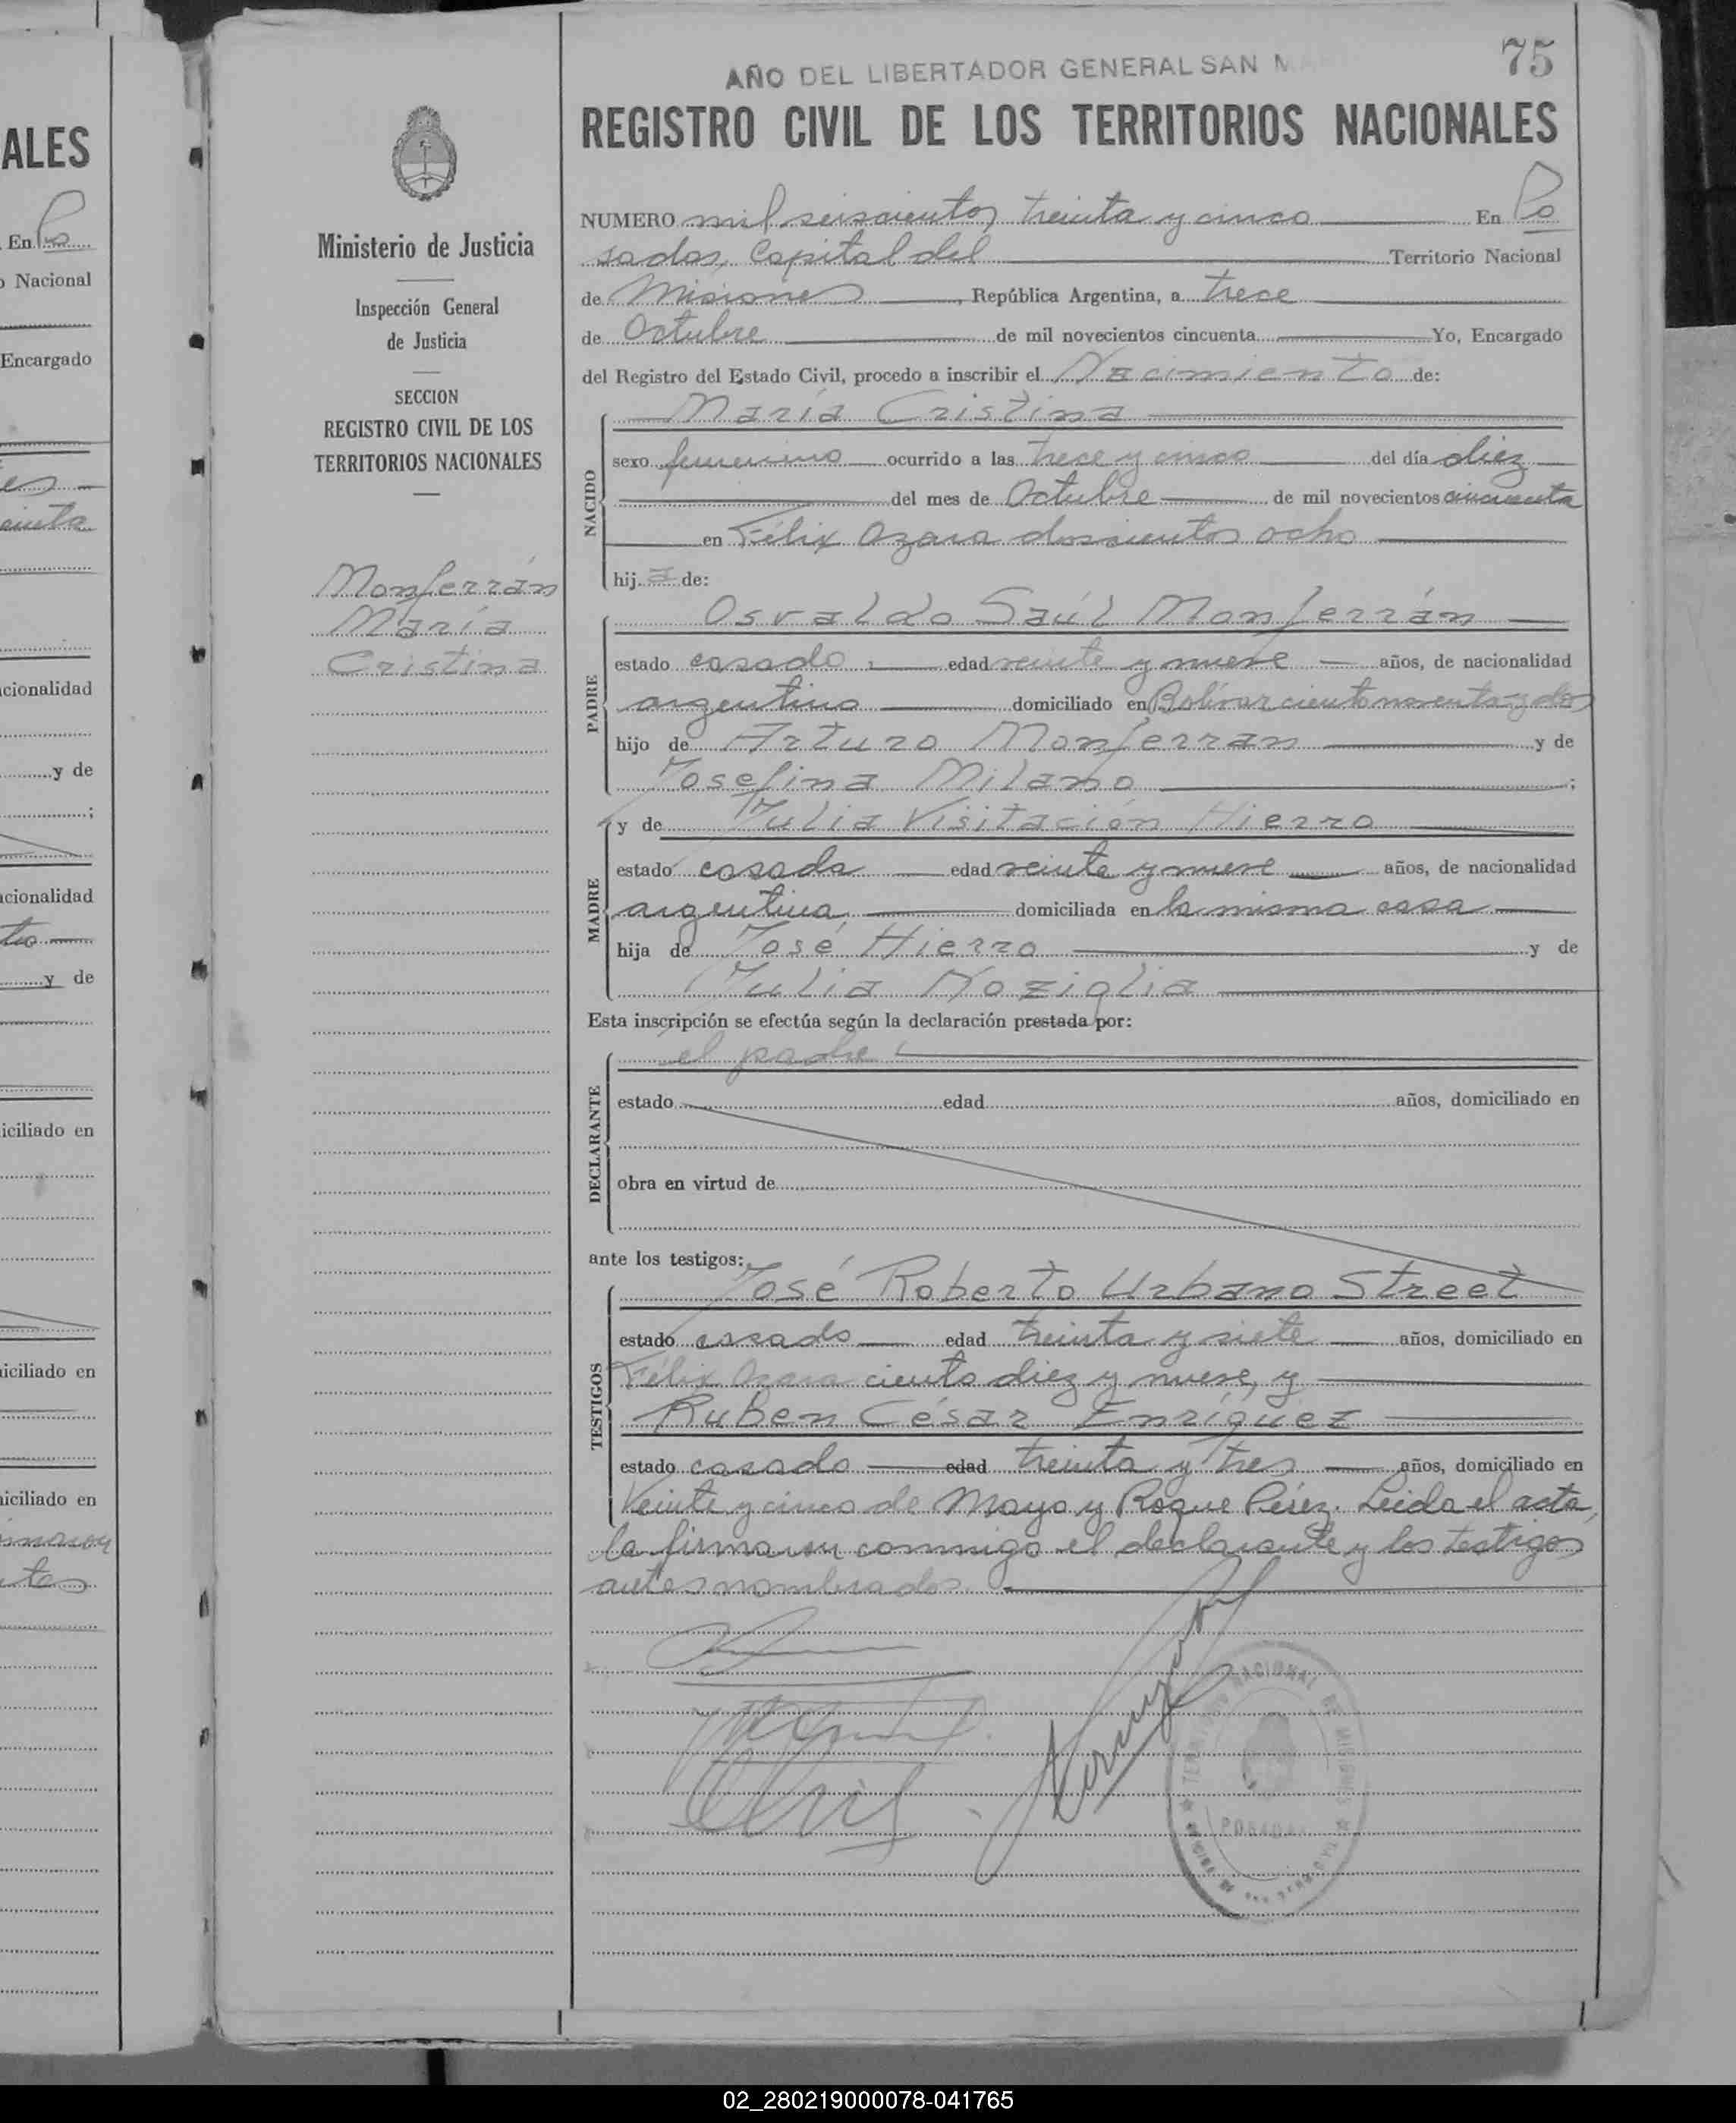 75
AÑO DEL LIBERTADOR GENERAL SAN MA
REGISTRO CIVIL DE LOS TERRITORIOS NACIONALES
Ministerio de Justicia
Inspección General
de Justicia
SECCION
REGISTRO CIVIL DE LOS
TERRITORIOS NACIONALES
Monferrán
María
Cristina
NUMERO mil seiscientos treinta y cinco En Po
sadas, Capital del Territorio Nacional
de Misiones, República Argentina, a trece
de Octubre de mil novecientos cincuenta Yo, Encargado
del Registro del Estado Civil, procedo a inscribir el Nacimiento de:
NACIDO
María Cristina
sexo femenino ocurrido a las trece y cinco del día diez
del mes de Octubre de mil novecientos cincuenta
en Félix Azara doscientos ocho
hija de:
PADRE
Osvaldo Saúl Monferrán
estado casado, edad veinte y nueve años, de nacionalidad
argentino domiciliado en Bolívar ciento noventa y dos
hijo de Arturo Monferran y de
Josefina Milano ;
MADRE
y de Julia Visitación Hierro
estado casada edad veinte y nueve años, de nacionalidad
argentina, domiciliada en la misma casa
hija de José Hierro y de
Julia Noziglia
Esta inscripción se efectúa según la declaración prestada por:
DECLARANTE
el padre
estado edad años, domiciliado en
obra en virtud de
ante los testigos:
TESTIGOS
José Roberto Urbano Street
estado casado edad treinta y siete años, domiciliado en
Félix Azara ciento diez y nueve, y
Ruben César Enríquez
estado casado edad treinta y tres años, domiciliado en
Veinte y cinco de Mayo y Roque Pérez. Leida el acta,
la firmaron conmigo el declarante y los testigos
antes nombrados
TERRITORIO NACIONAL DE MISIONES
POSADAS
ALES
En Po
o Nacional
Encargado
cionalidad
y de
;
acionalidad
y de
iciliado en
iciliado en
iciliado en
02_280219000078-041765